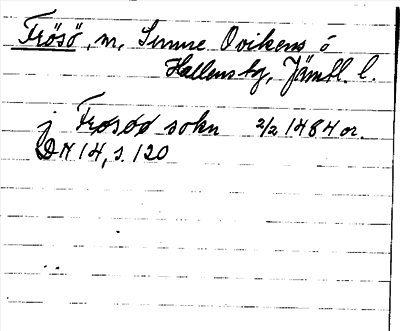 Frösö, m, Sunne Ovikens o
Hallens tg, Jämtl. l.
j Frosöö sokn 2/2 1484 or.
DN 14, s. 120